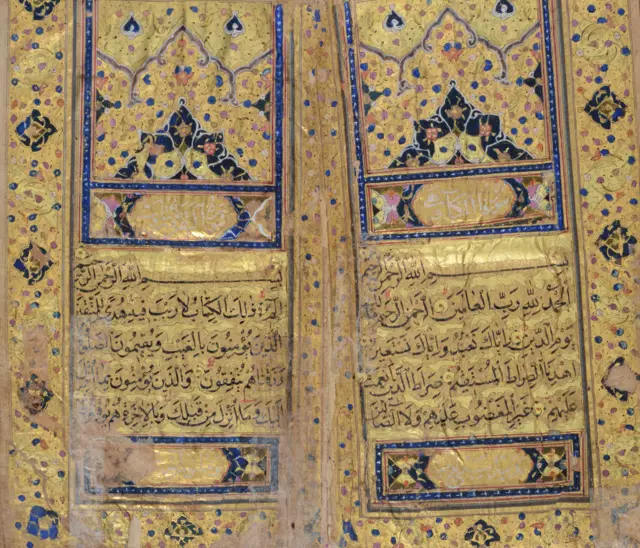 بسم الله الرحمن الرحيم
الحمد لله رب العالمين الرحمن الرحيم
يوم الدين اياك نعبد واياك نستعين
اهدنا الصراط المستقيم صراط الذين انعمت
عليهم غير المغضوب عليهم ولا الضالين
بسم الله الرحمن الرحيم
الم ذلك الكتاب لا ريب فيه هدى للمتقين
الذين يؤمنون بالغيب ويقيمون الصلوة
رزقناهم ينفقون والذين يؤمنون بما انزل
اليك وما انزل من قبلك وبالاخرة هم يوقنون